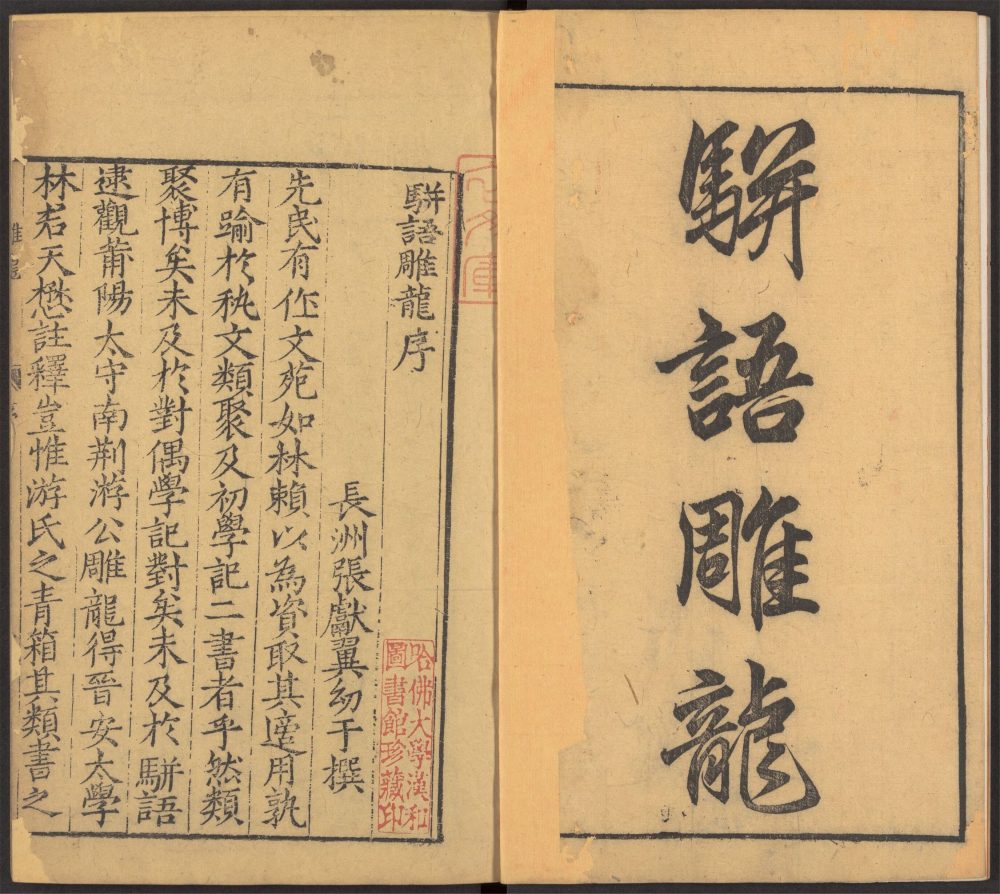 駢語雕龍
駢語雕龍序
長洲張獻翼幼于撰
先民有作文苑如林賴以為資取其適用孰
有踰於秇文類聚及初學記二書者乎然類
聚博矣未及於對偶學記對矣未及於駢語
逮觀莆陽太守南荆游公雕龍得晉安太學
林君天懋註釋豈惟游氏之青箱其類書之
哈佛大學漢和
圖書館珍藏印